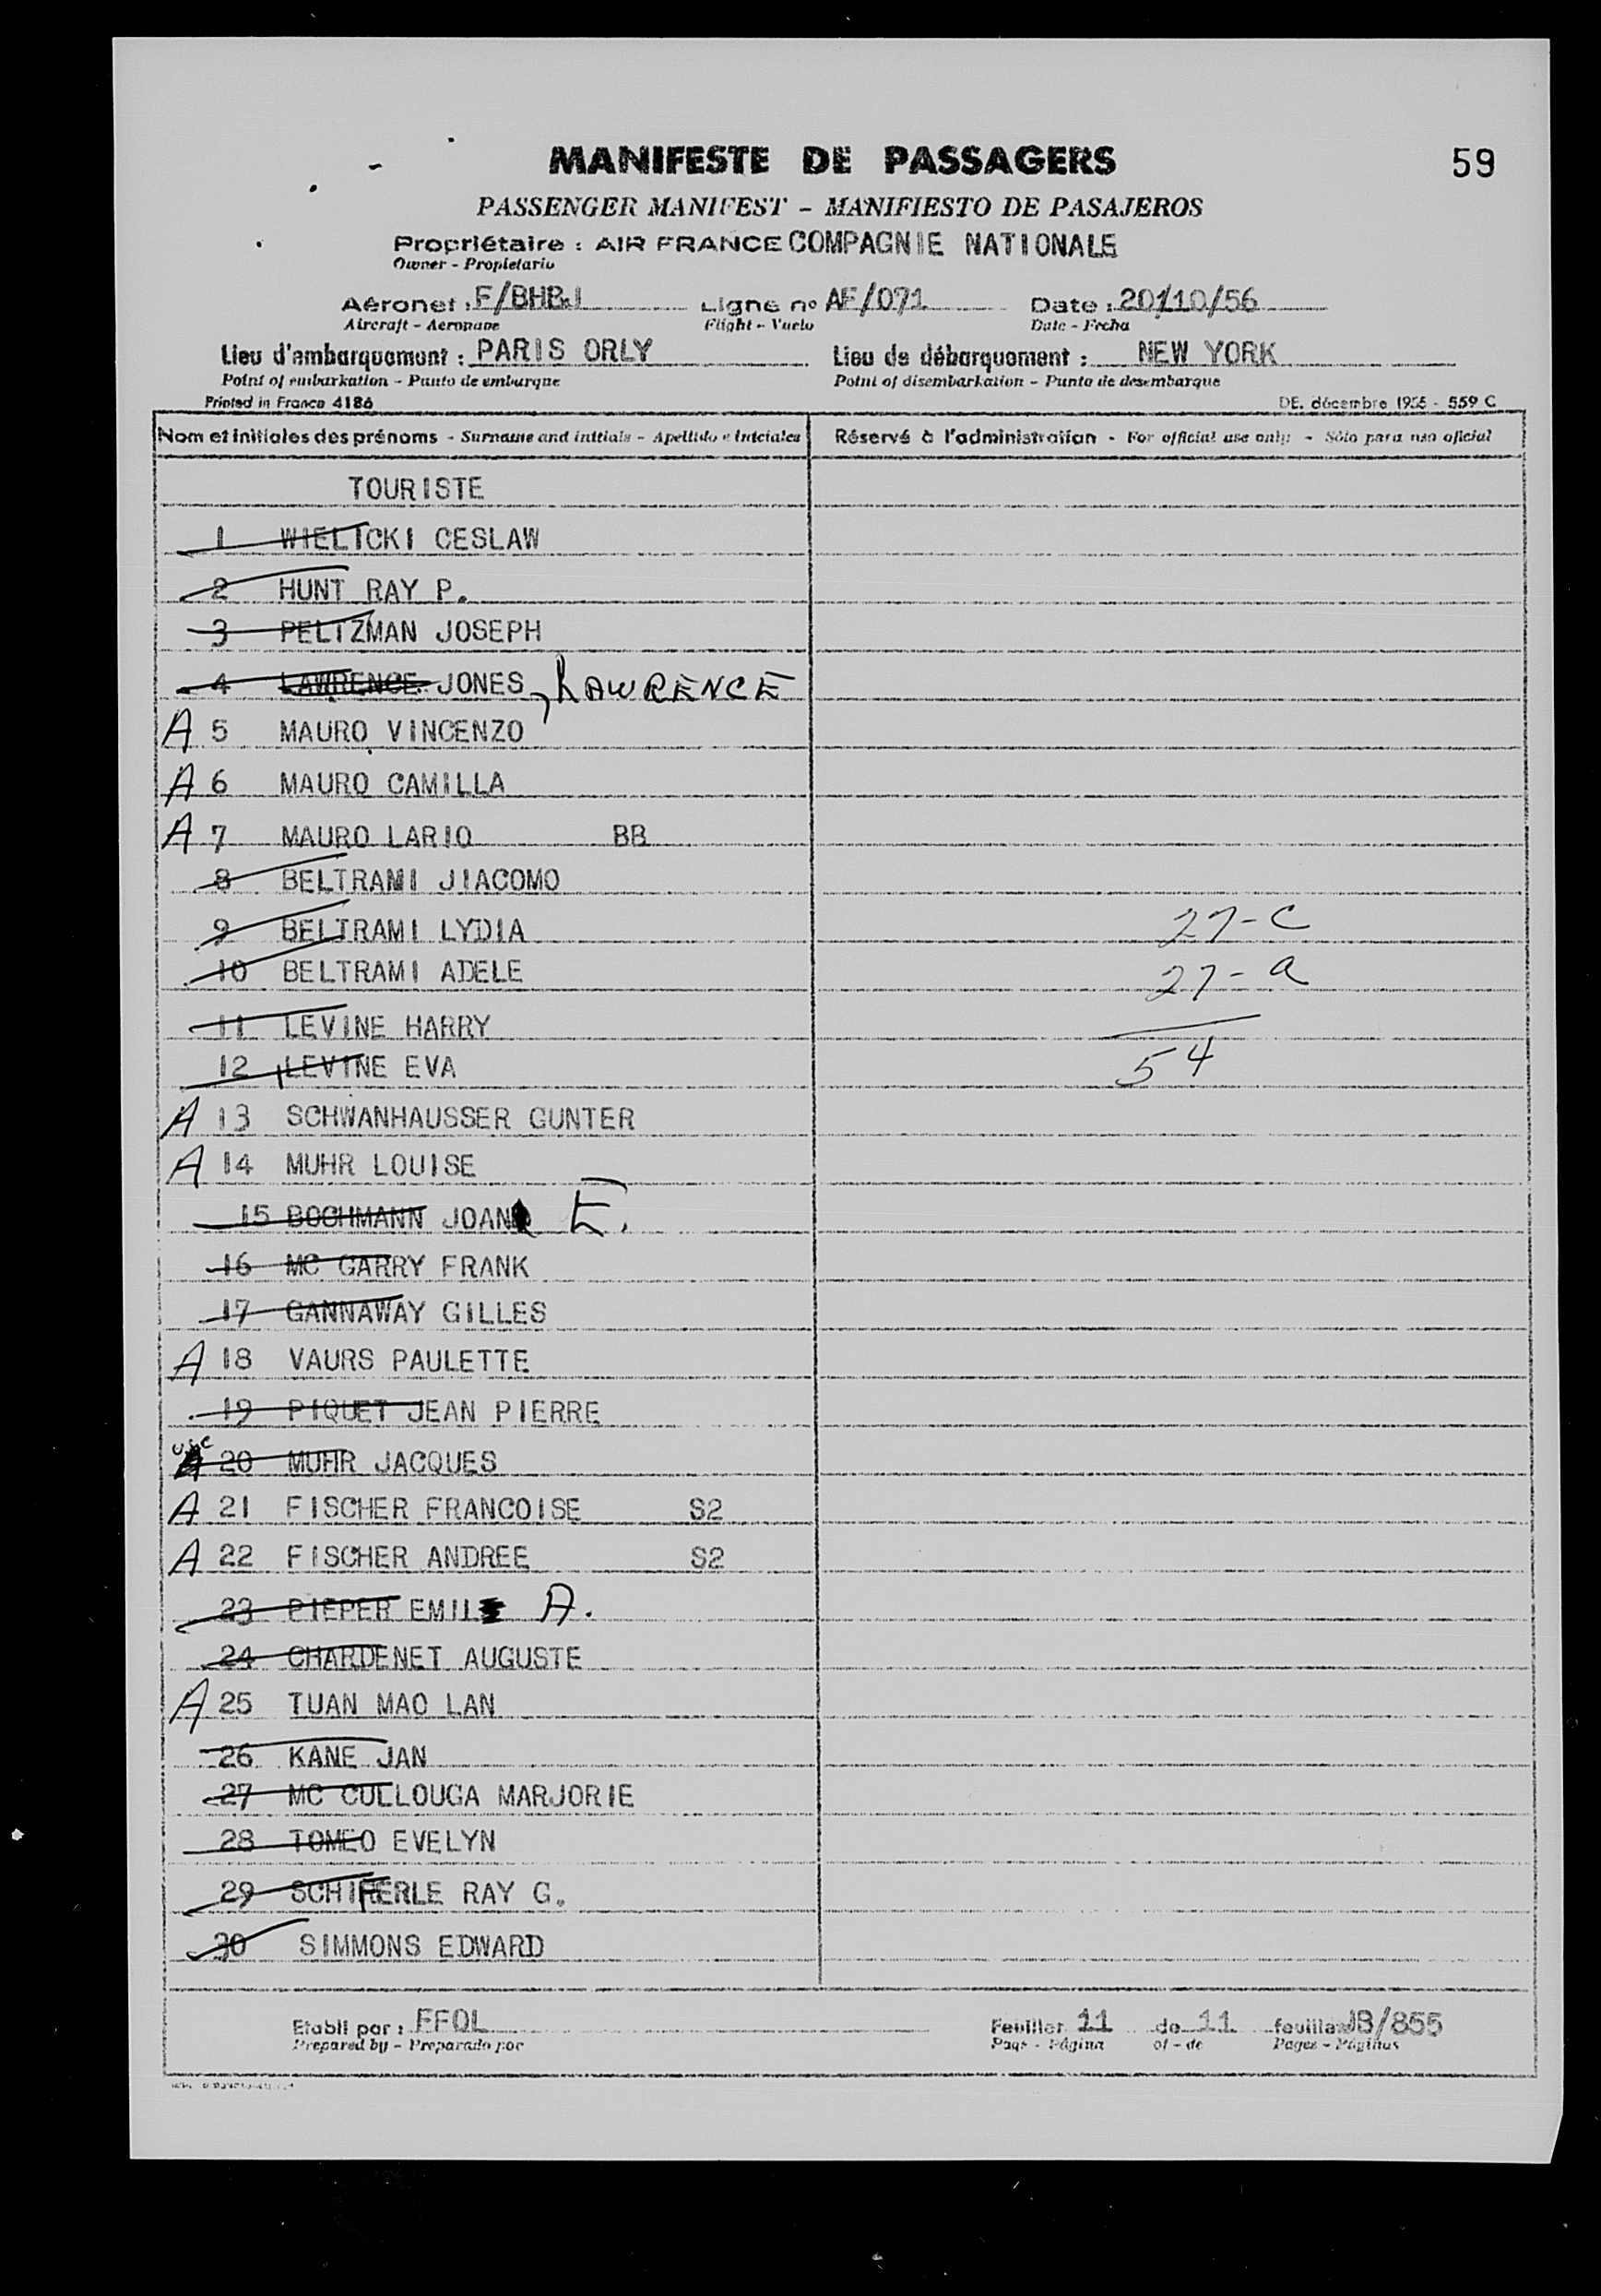 MANIFESTE DE PASSAGERS
59
PASSENGER MANIFEST – MANIFIESTO DE PASAJEROS
Propriétaire : AIR FRANCE COMPAGNIE NATIONALE
Owner - Propietario
Aéronef : F/BHBI Ligne nº AF/071 Date : 20/10/56
Aircraft - Aeronave Flight - Vuelo Date - Fecha
Lieu d'embarquement : PARIS ORLY Lieu de débarquement : NEW YORK
Point of embarkation - Punto de embarque Point of disembarkation - Punto de desembarque
Printed in France 4186 DE. décembre 1955 - 559 C
Nom et initiales des prénoms - Surname and initials - Apellido e iniciales Réservé à l'administration - For official use only - Sólo para uso oficial
TOURISTE
1 WIELICKI CESLAW
2 HUNT RAY P.
3 PELTZMAN JOSEPH
4 LAWRENCE JONES, LAWRENCE
A 5 MAURO VINCENZO
A 6 MAURO CAMILLA
A 7 MAURO LARIO BB
8 BELTRAMI JIACOMO
9 BELTRAMI LYDIA 27-C
10 BELTRAMI ADELE 27-a
11 LEVINE HARRY
12 LEVINE EVA 54
A 13 SCHWANHAUSSER GUNTER
A 14 MUHR LOUISE
15 BOCHMANN JOAN E.
16 MC GARRY FRANK
17 GANNAWAY GILLES
A 18 VAURS PAULETTE
19 PIQUET JEAN PIERRE
usc 20 MUHR JACQUES
A 21 FISCHER FRANCOISE S2
A 22 FISCHER ANDREE S2
23 PIEPER EMIL A.
24 CHARDENET AUGUSTE
A 25 TUAN MAO LAN
26 KANE JAN
27 MC CULLOUGA MARJORIE
28 TOMEO EVELYN
29 SCHIFERLE RAY G.
30 SIMMONS EDWARD
Etabli par : FFOL Feuillet 11 de 11 feuilles JB/855
Prepared by - Preparado por Page - Página of - de Pages - Páginas